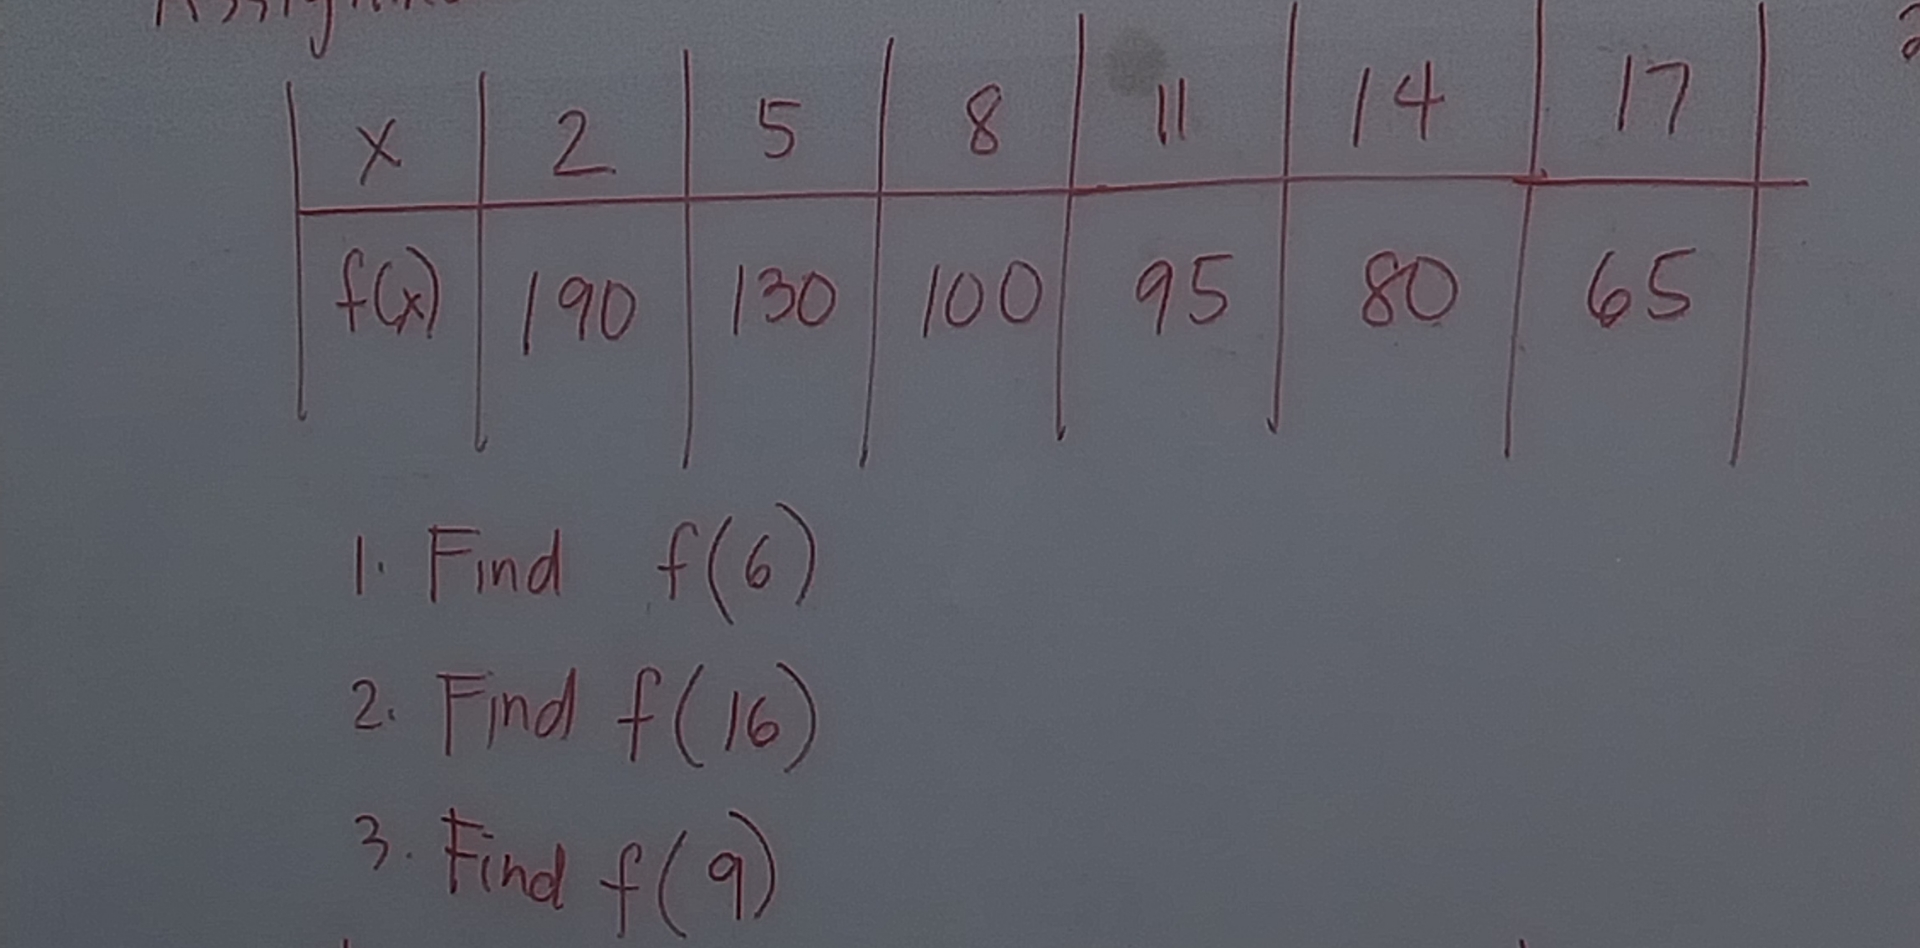 x 2 5 8 11 14 17
f(x) 190 130 100 95 80 65
1. Find f(6)
2. Find f(16)
3. Find f(9)